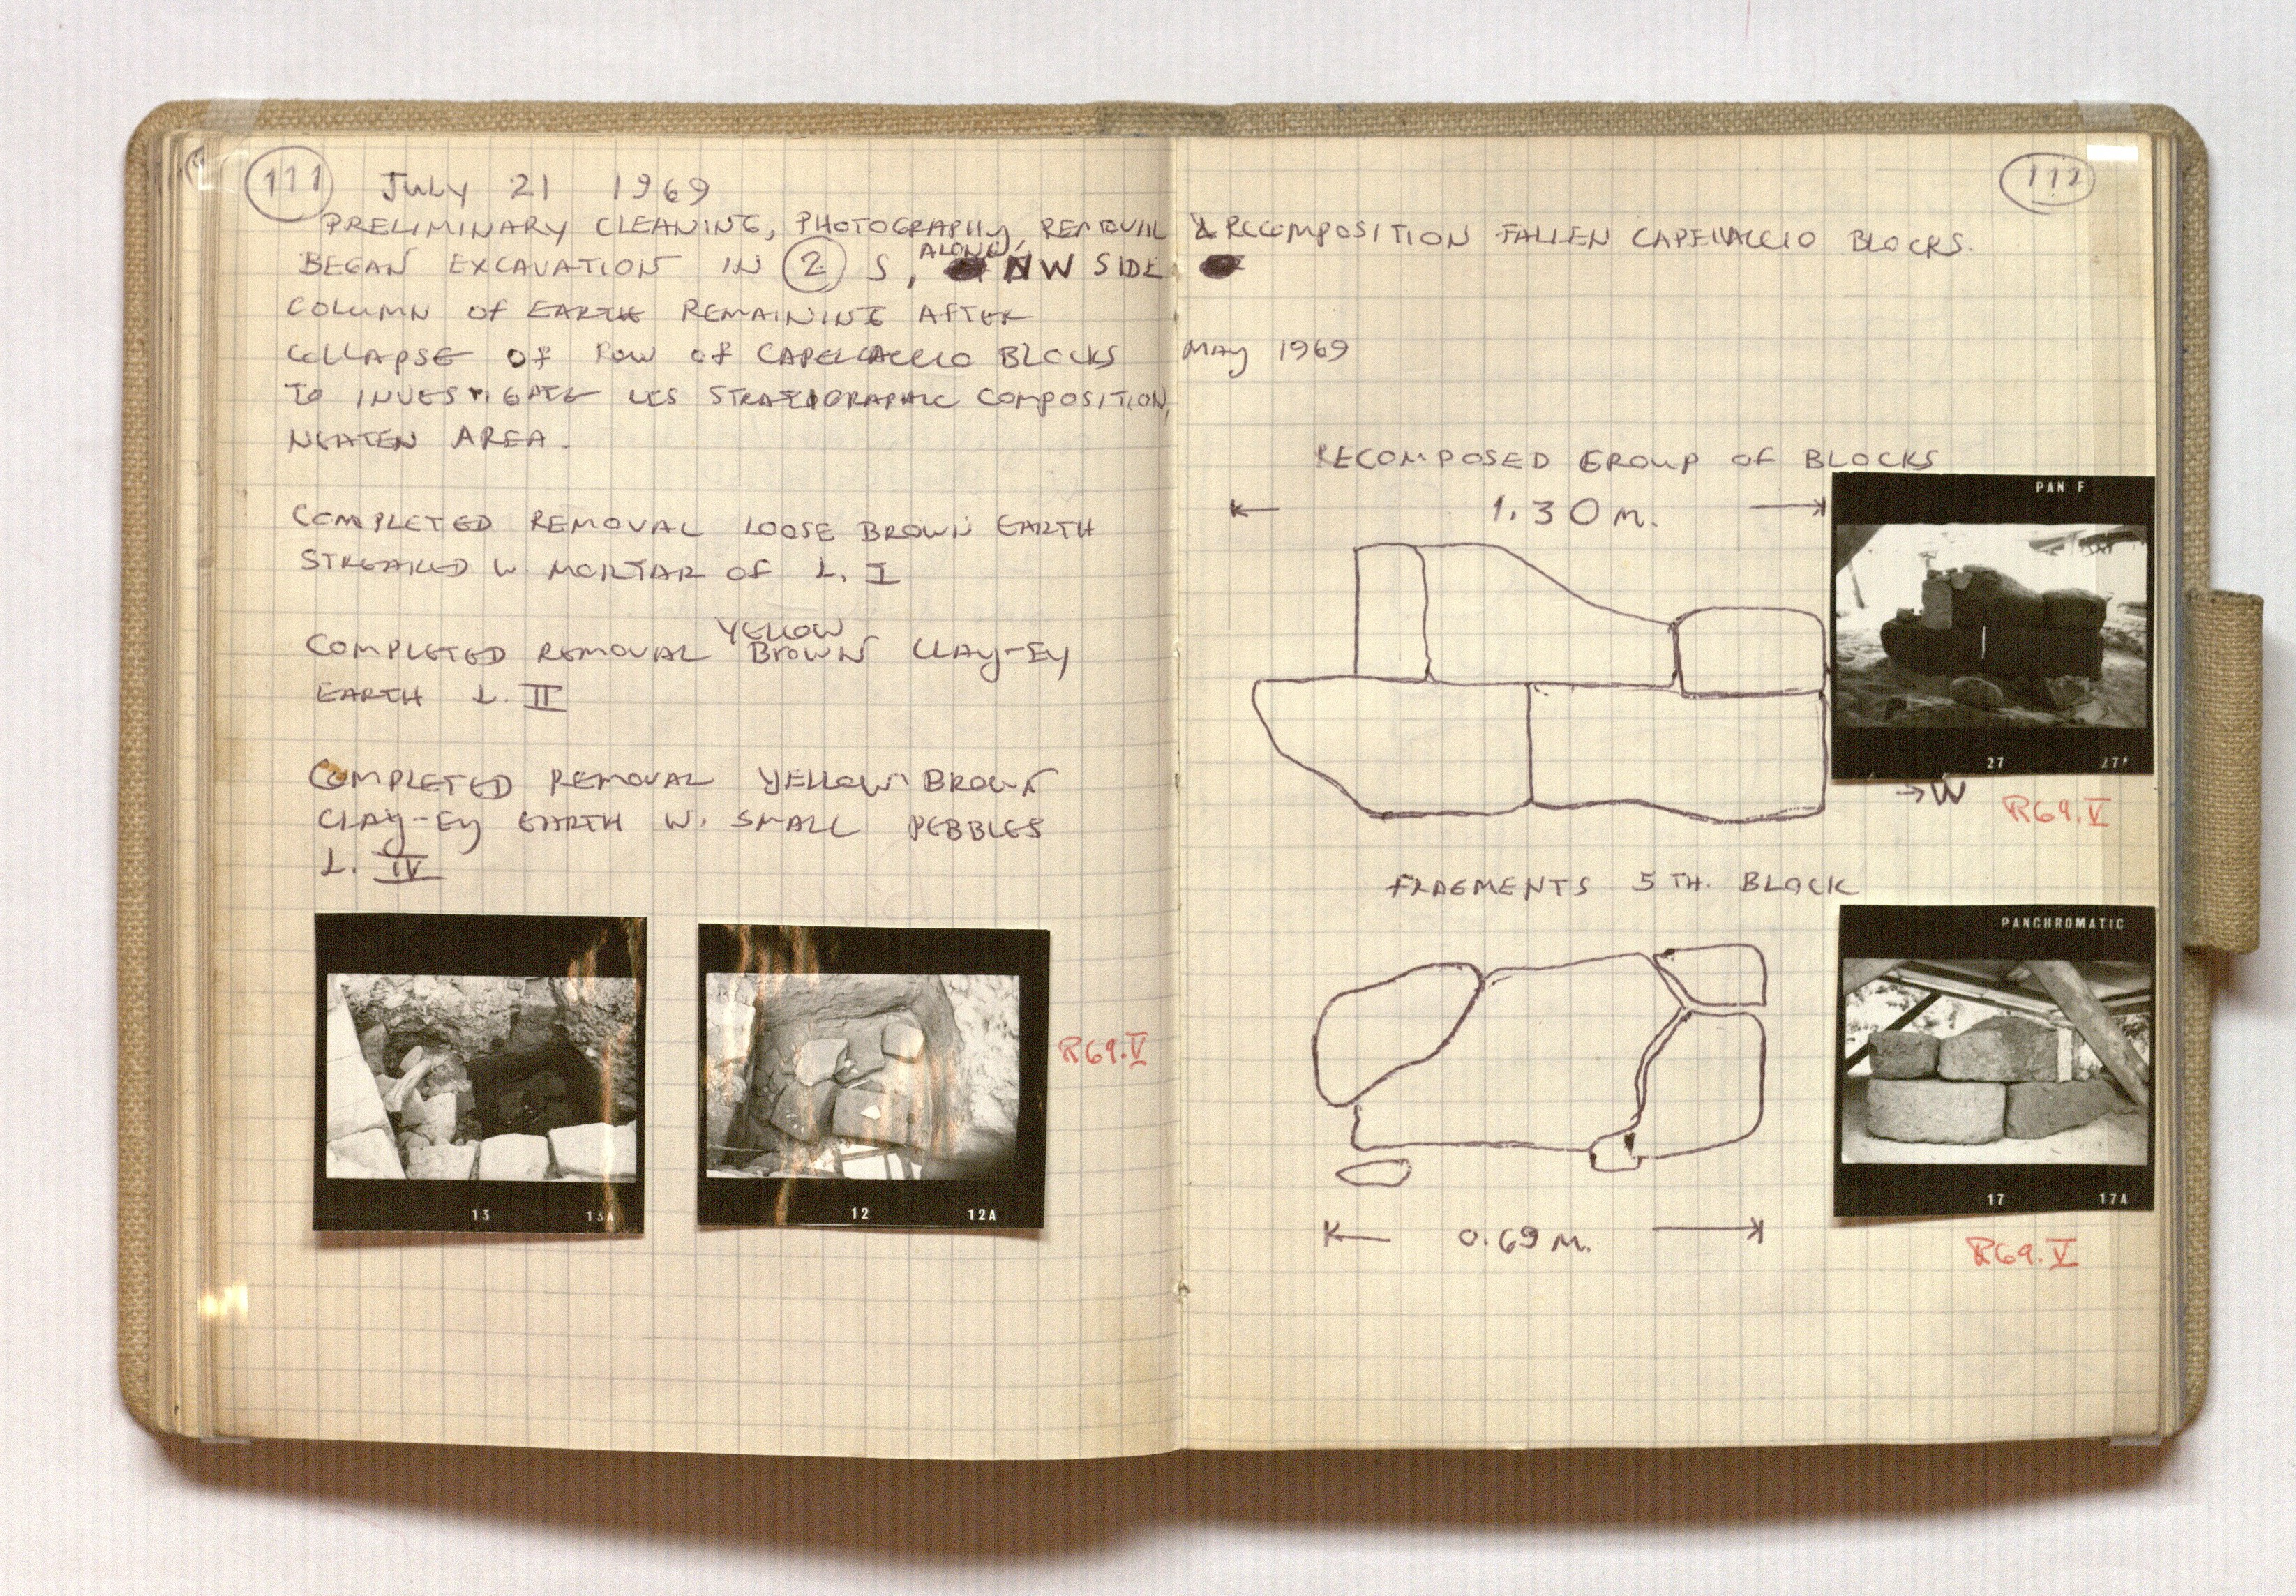 111 JULY 21 1969
PRELIMINARY CLEANING, PHOTOGRAPHY, REMOVAL & RECOMPOSITION FALLEN CAPELLACCIO BLOCKS.
BEGAN EXCAVATION IN 2 S, ALONG NW SIDE
COLUMN OF EARTH REMAINING AFTER
COLLAPSE OF ROW OF CAPELLACCIO BLOCKS
TO INVESTIGATE ITS STRATIGRAPHIC COMPOSITION,
NEATEN AREA.
COMPLETED REMOVAL LOOSE BROWN EARTH
STREAKED W. MORTAR OF L. I
COMPLETED REMOVAL YELLOW BROWN CLAY-EY
EARTH L. II
COMPLETED REMOVAL YELLOW BROWN
CLAY-EY EARTH W. SMALL PEBBLES
L. IV
13 13A
12 12A
R69.V
112
MAY 1969
RECOMPOSED GROUP OF BLOCKS
1.30 M.
PAN F
27 27A
→W
R69.V
FRAGMENTS 5TH. BLOCK
PANCHROMATIC
17 17A
0.69 M.
R69.V